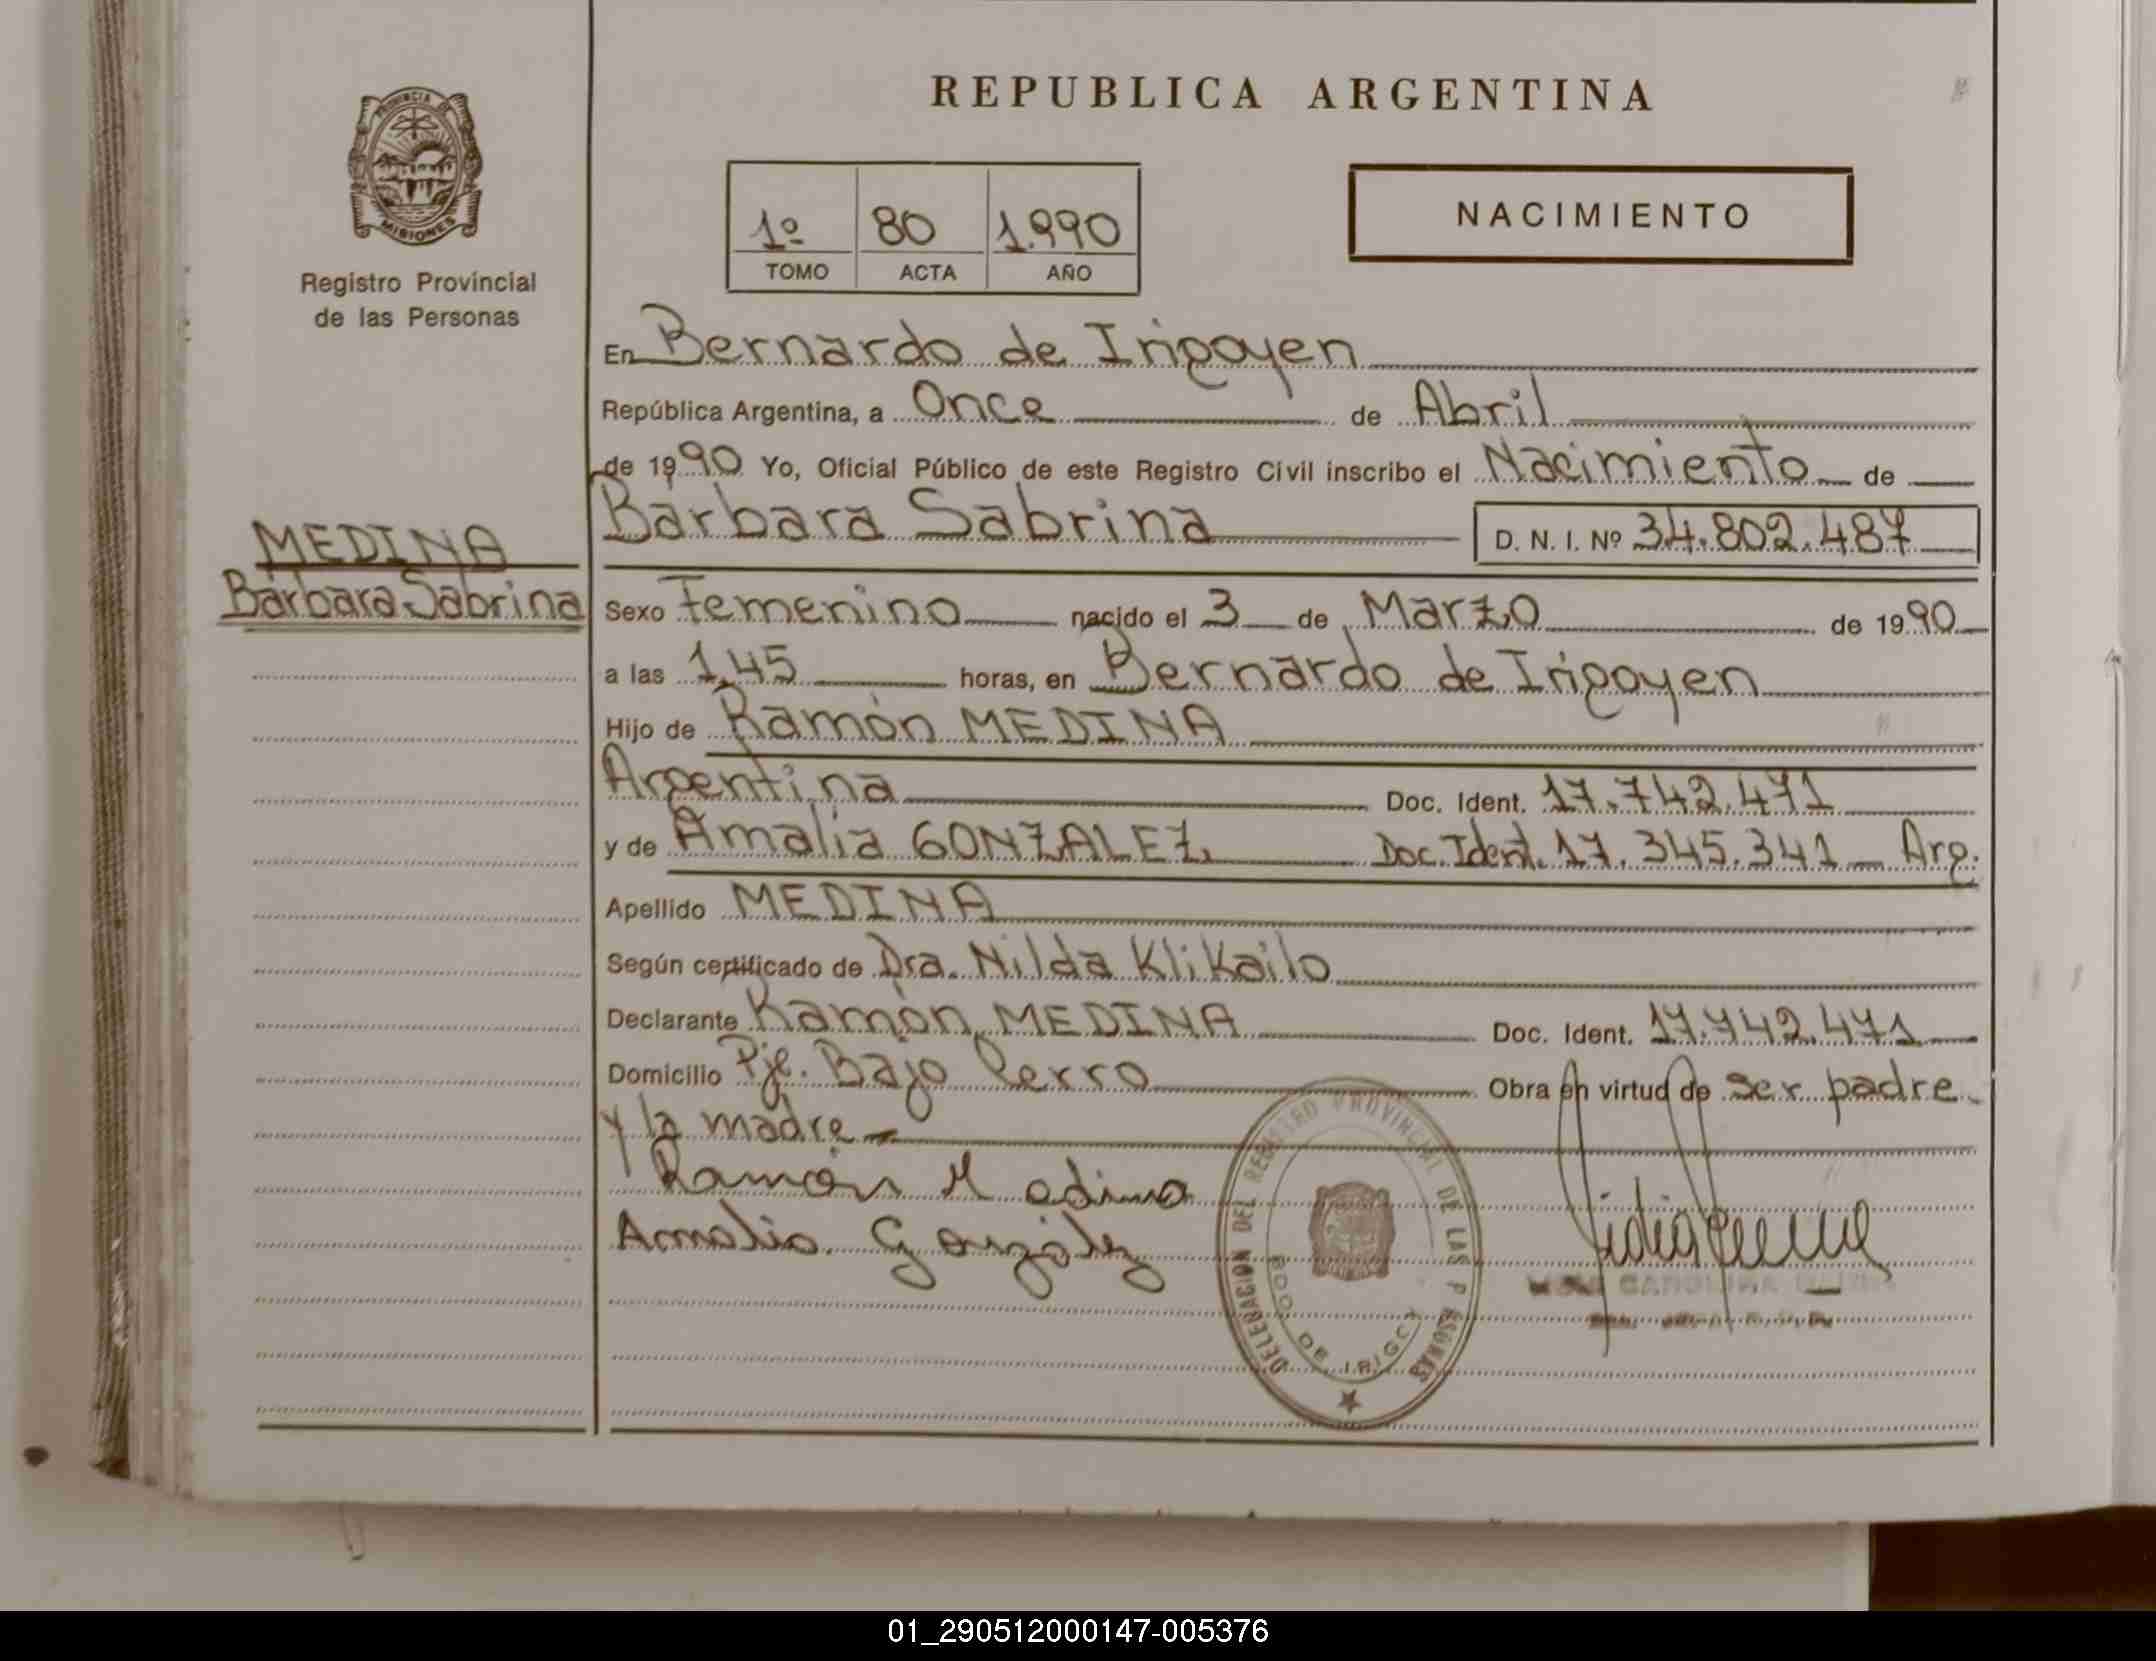 PROVINCIA DE
MISIONES
Registro Provincial
de las Personas
MEDINA
Bárbara Sabrina
REPUBLICA ARGENTINA
1º 80 1.990
TOMO ACTA AÑO
NACIMIENTO
En Bernardo de Irigoyen
República Argentina, a Once de Abril
de 1990 Yo, Oficial Público de este Registro Civil inscribo el Nacimiento de
Bárbara Sabrina D. N. I. Nº 34.802.487
Sexo Femenino nacido el 3 de Marzo de 1990
a las 1,45 horas, en Bernardo de Irigoyen
Hijo de Ramón MEDINA
Argentina Doc. Ident. 17.742.471
y de Amalia GONZALEZ, Doc. Ident. 17.345.341 Arg.
Apellido MEDINA
Según certificado de Dra. Nilda Klikailo
Declarante Ramón MEDINA Doc. Ident. 17.742.471
Domicilio Pje. Bajo Perro Obra en virtud de ser padre
y la madre
Ramón Medina
Amalia Gonzalez
DELEGACION DEL REGISTRO PROVINCIAL DE LAS PERSONAS
BDO. DE IRIGOY
CAROLINA
01_290512000147-005376